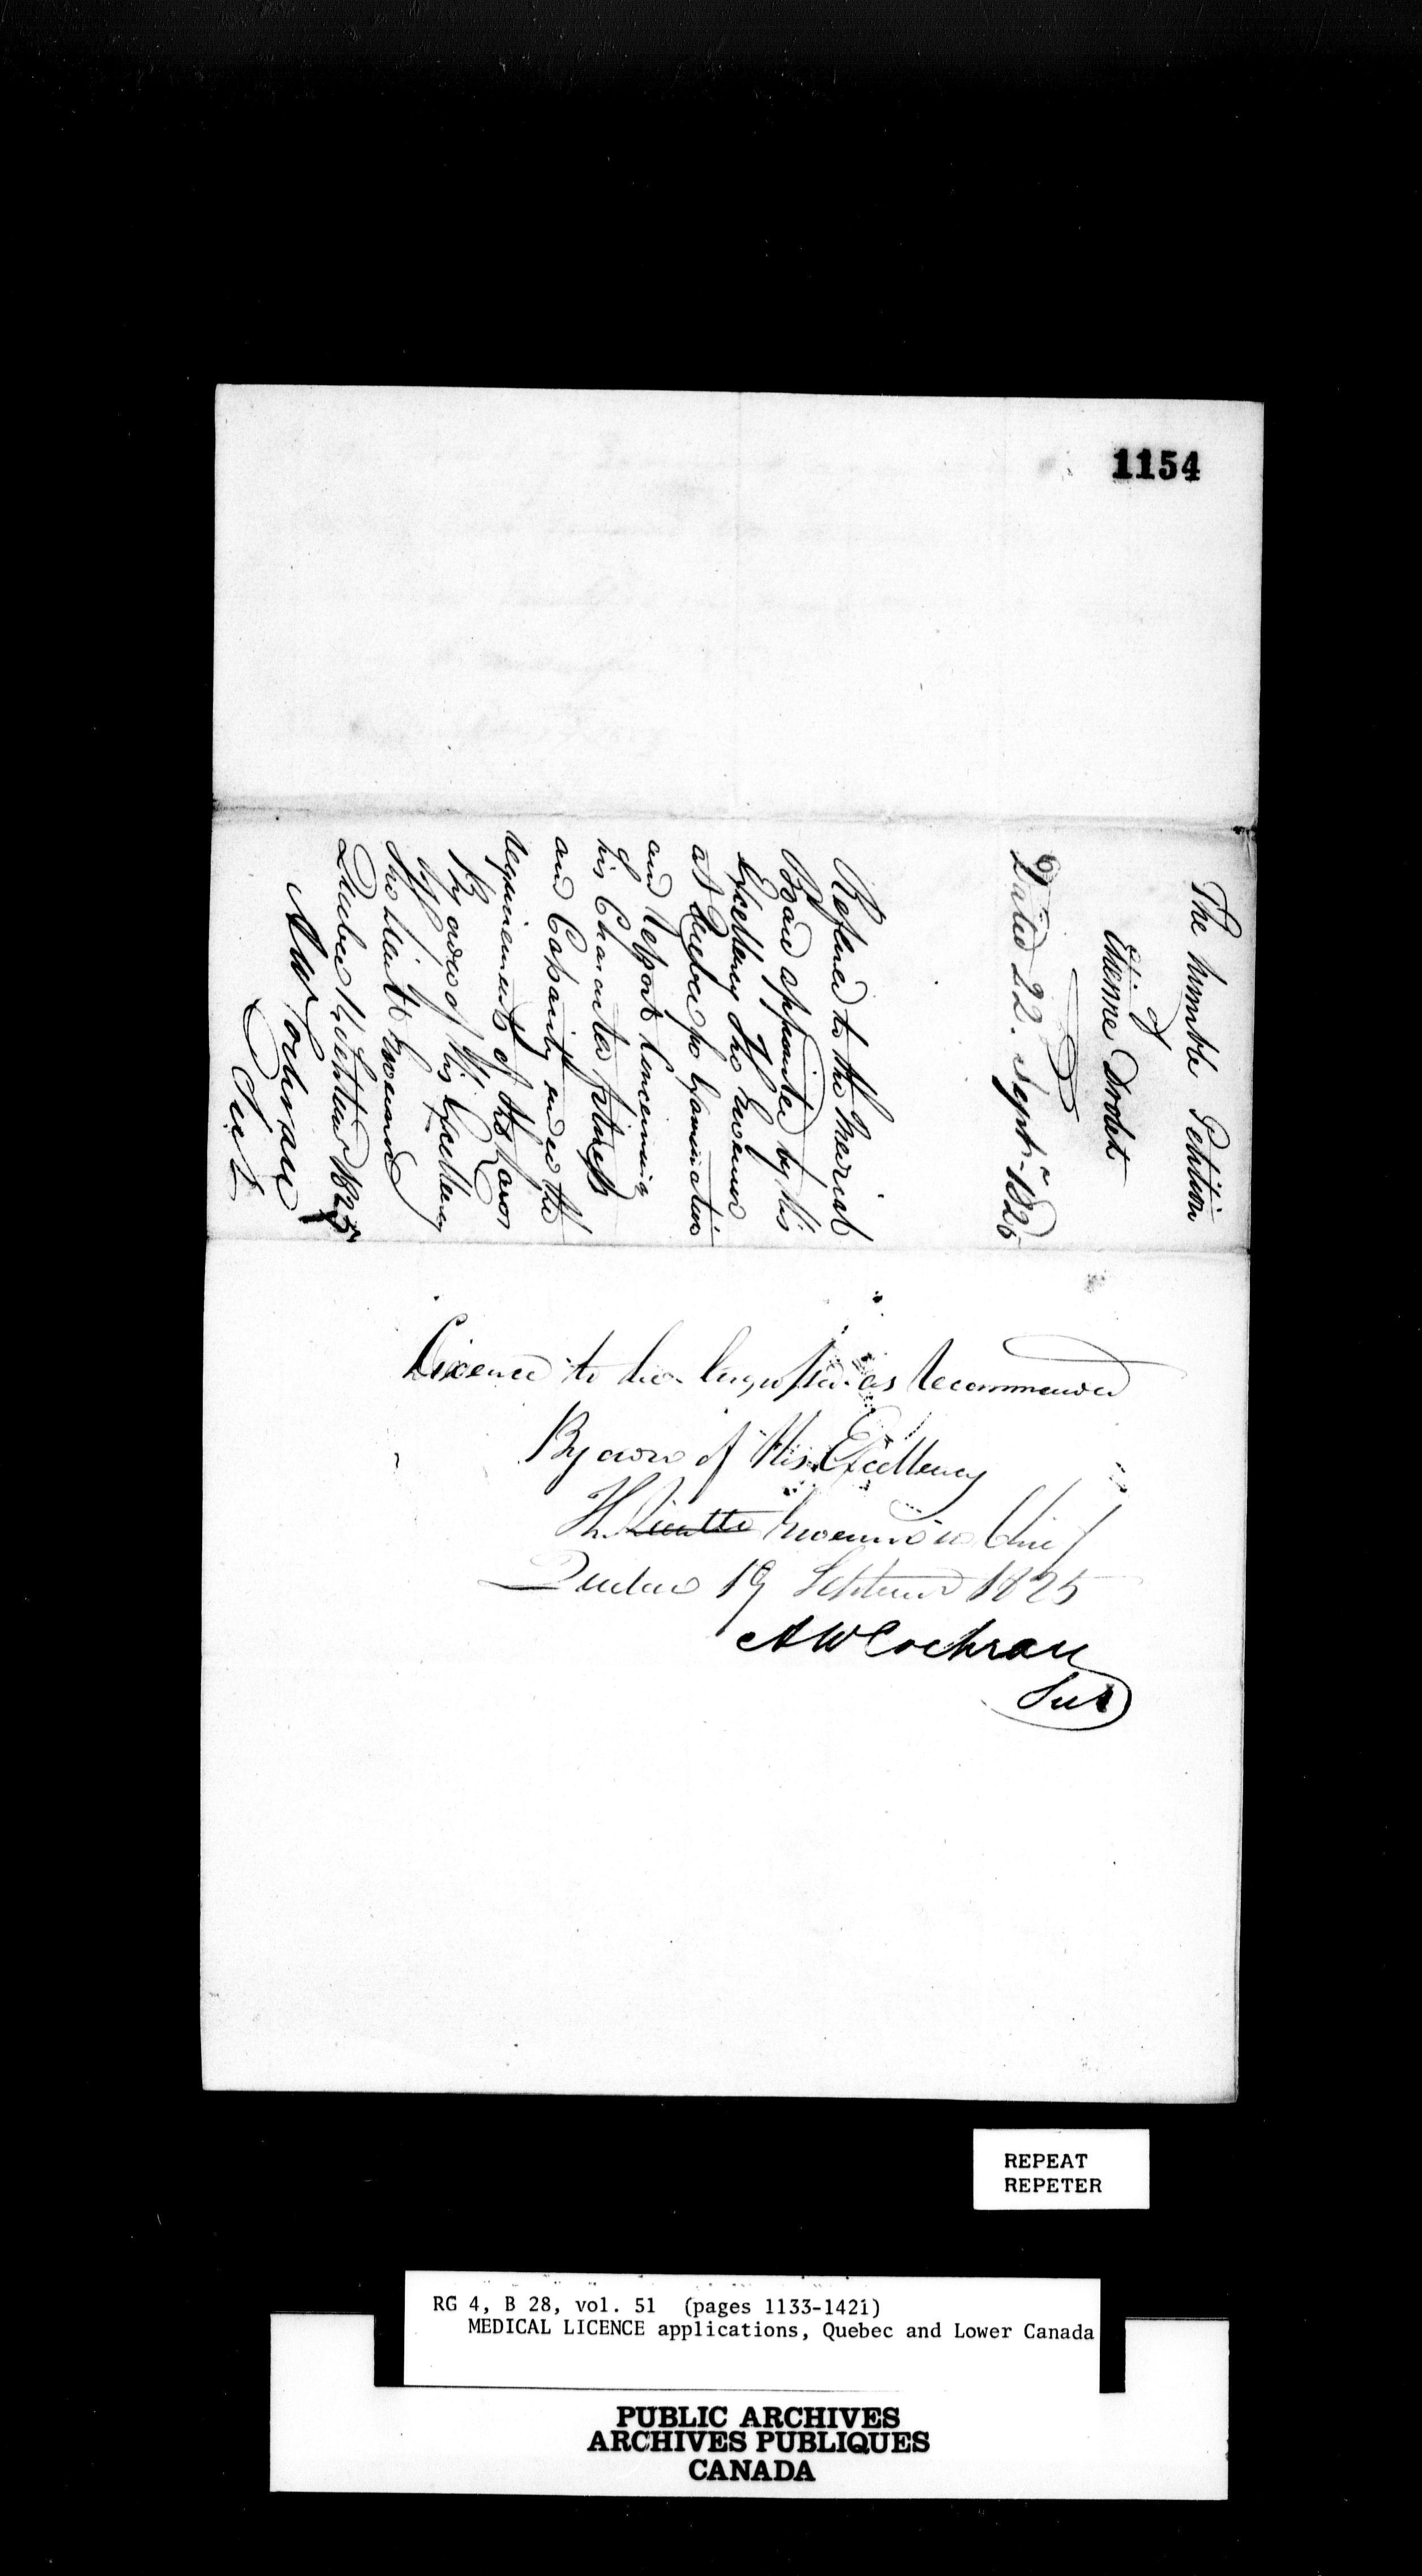 1154
The humble Petition
of
Etienne Drolet
Dated 22. Septr. 1825
Refered to the Medical
Board appointed by His
Excellency The Governor
at Quebec for Examination
and Report Concerning
his Character fitness
and Capacity and in the
requirements of the Law
By order of His Excellency
The Lieut Governor
Quebec September 1825
A W Cochran
Sec
Licence to be as Recommended
By order of His Excellency
The Governor in Chief
Quebec 19 September 1825
A W Cochran
Sec
REPEAT
REPETER
RG 4, B 28, vol. 51 (pages 1133-1421)
MEDICAL LICENCE applications, Quebec and Lower Canada
PUBLIC ARCHIVES
ARCHIVES PUBLIQUES
CANADA